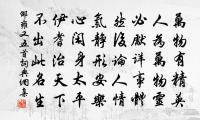 萬物有精英
人為萬物靈
必詳事體
然後論人情
氣靜形安樂
心閑身太平
伊耆治天下
不出此名生
邵雍又五首詞典網集